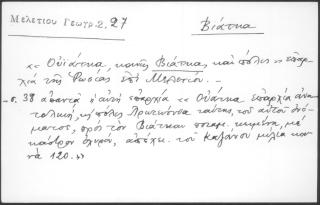 Μελετίου Γεωγρ. 2. 27
Βιάτκα
« Οὐϊάτκα κοινῆς Βιάτκα, καὶ πόλις » ἐπαρ-
χία τῆς Ρωσίας ἐπὶ Μελετίου. –
– σ. 38 ἀπαντᾷ ἡ αὐτὴ ἐπαρχία « Οὐάτκα ἐπαρχία ἀνα-
τολικὴ, κ πόλις Πρωτεύουσα ταύτης, τοῦ αὐτοῦ ὀνό-
ματος, πρὸ τὸν Βιάτκαν ποταμ. κειμένη, μὲ
κάστρον ὀχυρόν, ἀπέχει τοῦ Καζάνου μίλια κοι-
νὰ 120. »